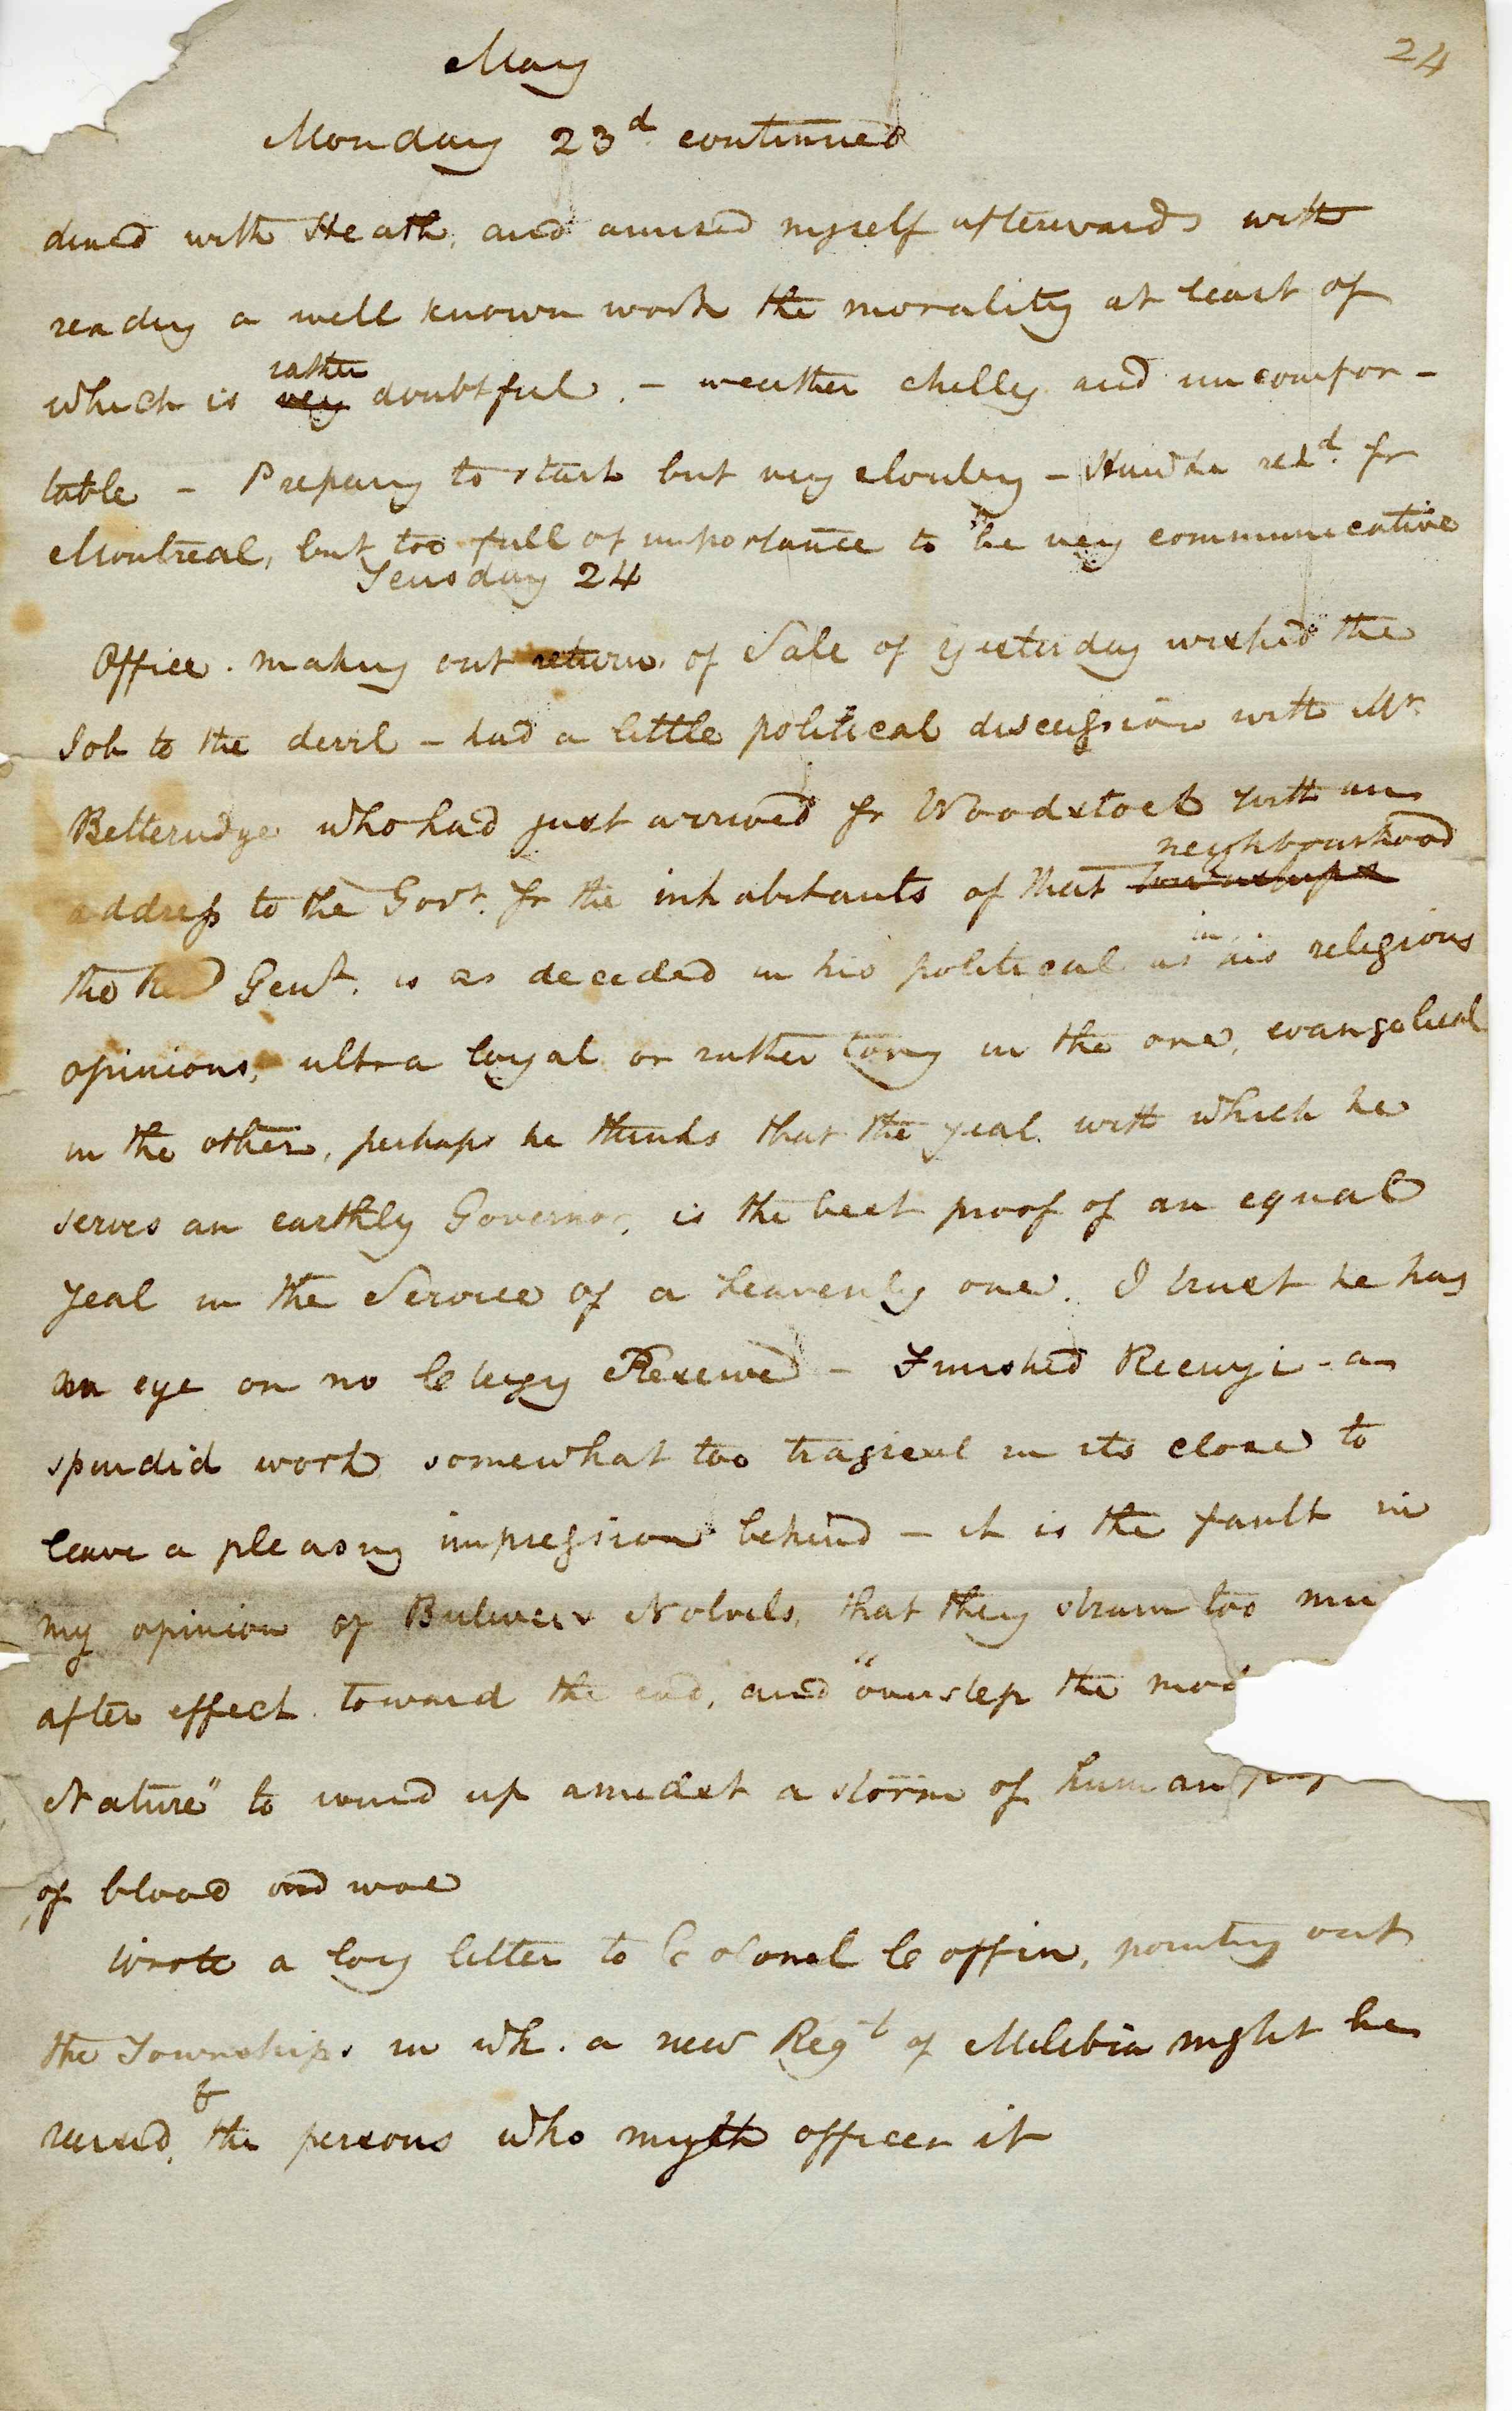 24
May
Monday 23d continued
dined with Heath, and amused myself afterwards with
reading a well known work the morality at least of
rather
which is very doubtful. - weather chilly and uncomfor-
table - Preparing to start but very slowly - retd. fr
Montreal, but too full of importance to be very communicative
Teusday 24
Office. making out return of Sale of yesterday wished the
Job to the devil - had a little political discussion with Mr.
Betteridge who had just arrived fr Woodstock with an
neighbourhood
address to the Govr. fr the inhabitants of that townships
the Revd Gent. is as decided in his political as in his religious
opinions, ultra loyal or rather tory in the one, evangelical
in the other, perhaps he thinks that the zeal with which he
serves an earthly Governor, is the best proof of an equal
zeal in the Service of a heavenly one. I trust he has
an eye on no Clergy Reserve - Finished Rienzi - a
spendid work somewhat too tragical in its close to
leave a pleasing impression behind - it is the fault in
my opinion of Bulwers Novels, that they strain too mu
after effect toward the end, and "overstep the mod
Nature" to wind up amidst a storm of human
of blood and woe
Wrote a long letter to Colonel Coffin, pointing out
the Townships in wh. a new Regt of Militia might be
&
raised, the persons who might officer it